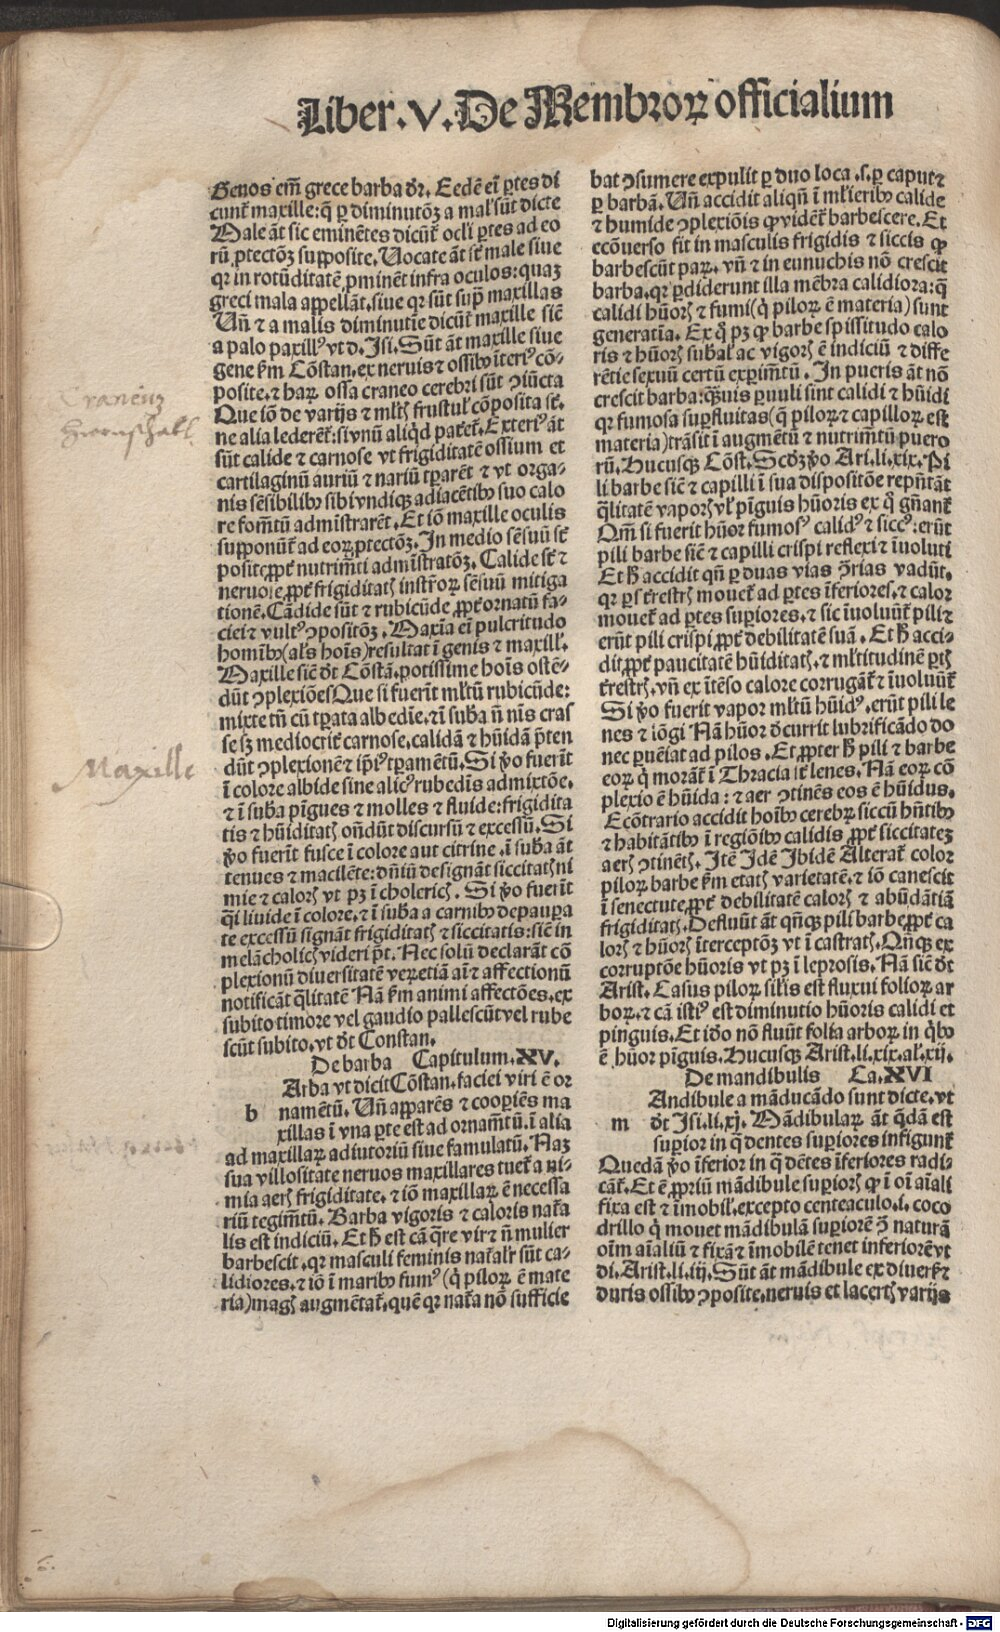 Liber .V. De Membroꝝ officialium
Genos em̄ grece barba dr̄. Eedē ei ꝑtes di
cunt᷑ maxille: q̄ ꝑ diminutōꝫ a mal sūt dicte
Male āt sic eminētes dicūt᷑ ocl'i ꝑtes ad eo
rū ꝓtectōꝫ supposite. Uocate āt st̄ male siue
qr in rotūditatē ꝓminēt infra oculos: quaꝫ
greci mala appellāt. siue qr sūt sup̄ maxillas
Uñ ⁊ a malis diminutie dicūt᷑ maxille siē
a palo paxillꝰ vt d. Isi. Sūt āt maxille siue
gene km̄ Cōstan. ex neruis ⁊ ossibꝰ īteriꝰ cō-
posite. ⁊ haꝝ ossa craneo cerebri sūt ↄiūcta
Que iō de varijs ⁊ ml't frustul' cōposita st̄.
ne alia lederēt᷑: si vnū aliqd patet᷑. Exteriꝰ āt
sūt calide ⁊ carnose vt frigiditatē ossium et
cartilaginū auriū ⁊ nariū tꝑarēt ⁊ vt orga-
nis sēsibilibꝰ sibi vndiqꝫ adiacētibꝰ suo calo
re fomētū admīstrarēt. Et iō maxille oculis
supponūt᷑ ad eoꝝ ꝓtectōꝫ. In medio sēsuū st̄
posite ꝓpt᷑ nutrimēti admīstratōꝫ. Calide st̄ ⁊
neruose ꝓpt᷑ frigiditatꝭ instr̄oꝝ sēsuū mitiga
tionē. Cādide sūt ⁊ rubicūde ꝓpt᷑ ornatū fa-
ciei ⁊ vultꝰ ↄpositōꝫ. Maxīa ei pulcritudo
homībꝰ (al's hoīs) resultat ī genis ⁊ maxill'.
Maxille siē dt̄ Cōstā. potissime hoīs ostē-
dūt ↄplexiōes Que si fuerīt ml'tū rubicūde:
mixte tn̄ cū tꝑata albedīe. ⁊ ī suba n̄ nīs cras
se sꝫ mediocrit᷑ carnose. calidā ⁊ hūidā p̄ten
dūt ↄplexionē ⁊ ipiꝰ tꝑamētū. Si ꝟo fuerīt
ī colore albide sine alicꝰ rubedīs admixtōe.
⁊ ī suba pīgues ⁊ molles ⁊ fluide: frigidita
tis ⁊ hūiditatꝭ on̄dūt discursū ⁊ excessū. Si
ꝟo fuerīt fusce ī colore aut citrine. ī suba āt
tenues ⁊ macilēte: dn̄iū designāt siccitatꝭ ni
mie ⁊ calorꝭ vt pꝫ ī cholericꝭ. Si ꝟo fuerīt
q̄i liuide ī colore. ⁊ ī suba a carnibꝰ depaupa
te excessū signāt frigiditatꝭ ⁊ siccitatis: siē in
melācholicꝭ videri pt̄. Nec solū declarāt cō
plexionū diuersitatē veꝝ etiā aīe affectionū
notificāt q̄litatē Nā km̄ animi affectōes. ex
subito timore vel gaudio pallescūt vel rube
scūt subito. vt dt̄ Constan.
De barba Capitulum. XV.
Arba vt dicit Cōstan. faciei viri ē or
b namētū. Uñ apparēs ⁊ coopiēs ma
xillas ī vna ꝑte est ad ornam̄tū. ī alia
ad maxillaꝝ adiutoriū siue famulatū. Naꝫ
sua villositate neruos maxillares tuet᷑ a ni-
mia aerꝭ frigiditate. ⁊ iō maxillaꝝ ē necessa
riū tegim̄tū. Barba vigoris ⁊ caloris nat᷑a
lis est indiciū. Et h̄ est cā qre vir ⁊ n̄ mulier
barbescit. qr masculi feminis nat᷑al'r sūt ca-
lidiores. ⁊ iō ī maribꝰ fumꝰ (q̇ piloꝝ ē mate
ria) magꝭ augmētat᷑. quē qr nat᷑a nō sufficie
bat ↄsumere expulit ꝑ duo loca .s. ꝑ caput ⁊
ꝑ barbā. Uñ accidit aliqn̄ ī ml'ieribꝰ calide
⁊ humide ↄplexiōis ꝙ vident᷑ barbescere. Et
ecōuerso fit in masculis frigidis ⁊ siccis ꝙ
barbescūt paꝝ. vñ ⁊ in eunuchis nō crescit
barba. qr ꝑdiderunt illa mēbra calidiora: q̄
calidi hūorꝭ ⁊ fumi (q̇ piloꝝ ē materia) sunt
generatīa. Ex q̊ pꝫ ꝙ barbe spissitudo calo
ris ⁊ hūorꝭ subal' ac vigorꝭ ē indiciū ⁊ diffe
rētie sexuū certū exꝑim̄tū. In pueris āt nō
crescit barba: qūis ꝑuuli sint calidi ⁊ hūidi
qr fumosa suꝑfluitas (q̄ piloꝝ ⁊ capilloꝝ est
materia) trāsit ī augmētū ⁊ nutrim̄tū puero
rū. Hucusqꝫ Cōst. Scd̄ꝫ ꝟo Ari. li. xix. Pi
li barbe siē ⁊ capilli ī sua dispositōe repn̄tāt
q̄litatē vaporꝭ vl' pīguis hūoris ex q̊ gn̄ant᷑
Qm̄ si fuerit hūor fumosꝰ calidꝰ ⁊ siccꝰ: erūt
pili barbe siē ⁊ capilli crispi reflexi ⁊ īuoluti
Et h̄ accidit qn̄ ꝑ duas vias ↄ̄rias vadūt.
qr ꝑs t᷑restrꝭ mouet᷑ ad ꝑtes īferiores. ⁊ calor
mouet᷑ ad ꝑtes suꝑiores. ⁊ sic īuoluūt᷑ pili ⁊
erūt pili crispi ꝓpt᷑ debilitatē suā. Et h̄ acci-
dit ꝓpt᷑ paucitatē hūiditatꝭ. ⁊ ml'titudinē ꝑtꝭ
t᷑restrꝭ. vñ ex ītēso calore corrugāt᷑ ⁊ īuoluūt᷑
Si ꝟo fuerit vapor ml'tū hūidꝰ. erūt pili le
nes ⁊ lōgi Nā hūor dcurrit lubrificādo do
nec ꝑueīat ad pilos. Et ꝓpter h̄ pili ⁊ barbe
eoꝝ q̇ morāt᷑ ī Thracia st̄ lenes. Nā eoꝝ cō
plexio ē hūida: ⁊ aer ↄtinēs eos ē hūidus.
Ecōtrario accidit hoībꝰ cerebꝝ siccū hn̄tibꝰ
⁊ habitātibꝰ ī regiōibꝰ calidis ꝓpt᷑ siccitateꝫ
aerꝭ ↄtinētꝭ. Itē Idē Ibidē Alterat᷑ color
piloꝝ barbe km̄ etatꝭ varietatē. ⁊ iō canescit
ī senectute ꝓpt᷑ debilitatē calorꝭ ⁊ abūdātiā
frigiditatꝭ. Defluūt āt qn̄qꝫ pili barbe ꝓpt᷑ ca
lorꝭ ⁊ hūorꝭ īterceptōꝫ vt ī castratꝭ. Qn̄qꝫ ex
corruptōe hūoris vt pꝫ ī leprosis. Nā siē dt̄
Arist. Casus piloꝝ sil'is est fluxui folioꝝ ar
boꝝ. ⁊ cā istiꝰ est diminutio hūoris calidi et
pinguis. Et iđo nō fluūt folia arboꝝ in q̇bꝰ
ē hūor pīguis. Hucusqꝫ Arist. li. xix. al'. xij.
De mandibulis Ca. XVI
Andibule a māducādo sunt dicte. vt
m dt̄ Isi. li. xj. Mādibulaꝝ āt q̄dā est
suꝑior in q̄ dentes suꝑiores infigunt᷑
Quedā ꝟo īferior in q̄ dētes īferiores radi-
cāt᷑. Et ē ꝓpriū mādibule suꝑiorꝭ ꝙ ī oī aīali
fixa est ⁊ īmobil'. excepto centeaculo .i. coco
drillo q̇ mouet mādibulā suꝑiorē ↄ̄ naturā
oīm aīaliū ⁊ fixā ⁊ īmobilē tenet inferiorē vt
di. Arist. li. iij. Sūt āt mādibule ex diuersꝭ ⁊
duris ossibꝰ ↄposite. neruis et lacertꝭ varijs
Craneuꝫ
hiernschall
Maxille
Digitalisierung gefördert durch die Deutsche Forschungsgemeinschaft - DFG